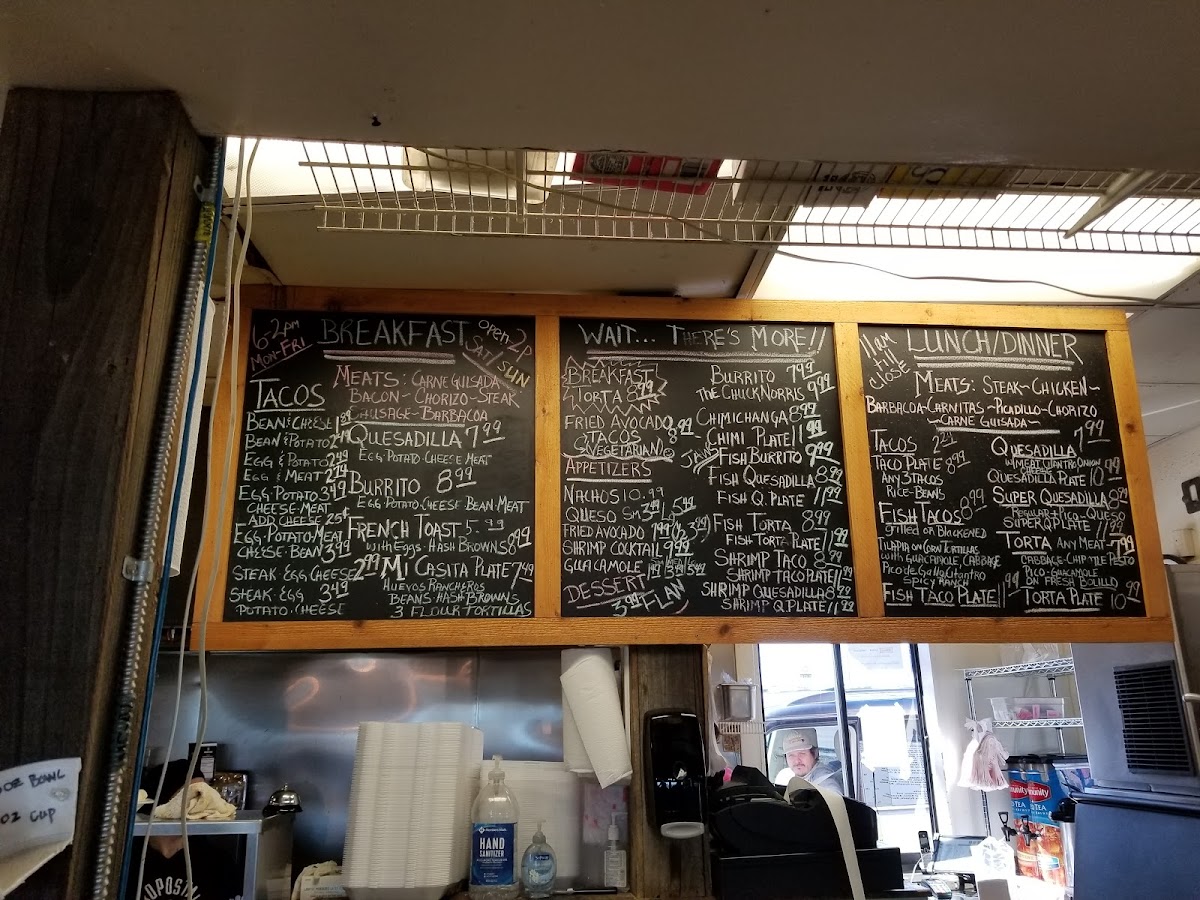 6-2pm
MON-FRI
BREAKFAST
OPEN-2P
SAT/SUN
MEATS: CARNE GUISADA
BACON-CHORIZO-STEAK
SAUSAGE-BARBACOA
TACOS
BEAN & CHEESE 1.99
BEAN & POTATO 2.49
EGG & POTATO 2.49
EGG & MEAT 2.79
EGG. POTATO 3.49
CHEESE. MEAT
ADD CHEESE 25¢
EGG. POTATO. MEAT
CHEESE. BEAN 3.99
STEAK EGG CHEESE 2.99
STEAK. EGG 3.49
POTATO. CHEESE
QUESADILLA 7.99
EGG. POTATO. CHEESE MEAT
BURRITO 8.99
EGG. POTATO. CHEESE BEAN. MEAT
FRENCH TOAST 5.99
WITH EGGS HASH BROWNS 8.99
MI CASITA PLATE 7.49
HUEVOS RANCHEROS
BEANS. HASH BROWNS
3 FLOUR TORTILLAS
WAIT... THERE'S MORE!!
BREAKFAST
TORTA 8.99
FRIED AVOCADO 8.99
TACOS
VEGETARIANO
APPETIZERS
NACHOS 10.99
QUESO SM 3.49 L 5.49
FRIED AVOCADO 7.49
SHRIMP COCKTAIL 9.99
GUACAMOLE
DESSERT
3.99 FLAN
BURRITO 7.99
THE CHUCK NORRIS 9.99
CHIMICHANGA 8.99
CHIMI PLATE 11.99
FISH BURRITO 9.99
FISH QUESADILLA 8.99
FISH Q. PLATE 11.99
FISH TORTA 8.99
FISH TORTA PLATE 11.99
SHRIMP TACO 8.99
SHRIMP TACO PLATE 11.99
SHRIMP QUESADILLA 8.99
SHRIMP Q. PLATE 11.99
11am
till
CLOSE
LUNCH/DINNER
MEATS: STEAK-CHICKEN~
BARBACOA-CARNITAS~PICADILLO-CHORIZO
~CARNE GUISADA~
TACOS 2.29
TACO PLATE 8.99
ANY 3 TACOS
RICE-BEANS
FISH TACOS 8.99
grilled or BLACKENED
TILAPIA ON CORN TORTILLAS
WITH GUACAMOLE, CABBAGE
PICO de GALLO CILANTRO
SPICY RANCH
FISH TACO PLATE 11.99
QUESADILLA 7.99
W/MEAT CILANTRO ONION
CHEESE
QUESADILLA PLATE 10.99
SUPER QUESADILLA 8.99
REGULAR + PICO-QUESO
SUPER Q PLATE 11.99
TORTA ANY MEAT 7.99
CABBAGE-CHIPOTLE PESTO
PICO-GUACAMOLE
ON FRESH BOLILLO
TORTA PLATE 10.99
OZ BOWL
OZ CUP
HAND
SANITIZER
TEA